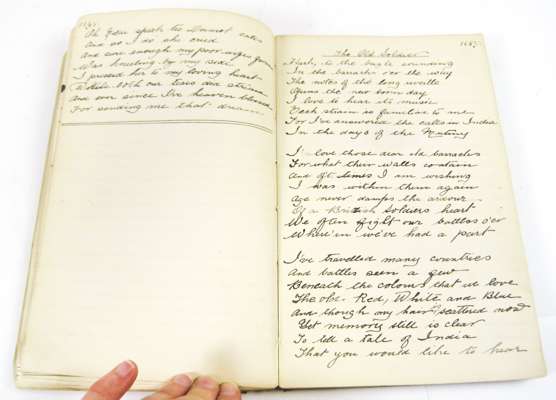 Oh Guv speak tis Dermot calls
And as I so she cried
And sure enough my poor wife's form
Was kneeling by my side
I pressed her to my loving heart
While both our tears did stream
And ever since I've heaven blessed
For sending me that dream
The Old Soldier
Hush, its the bugle sounding
In the barracks o'er the way
The notes of the long reveille
Opens the new born day
I love to hear its music
Each strain is familiar to me
For I've answered the calls in India
In the days of the Mutiny
I love those dear old barracks
For what their walls contain
And oft times I am wishing
I was within them again
Age never damps the ardour
Of a British Soldiers heart
We often fight our battles o'er
Where'in we've had a part
I've travelled many countries
And battles seen a few
Beneath the colours that we love
The obe. Red, White and Blue
And though my hair scattered now
Yet memory still is clear
To tell a tale of India
That you would like to hear